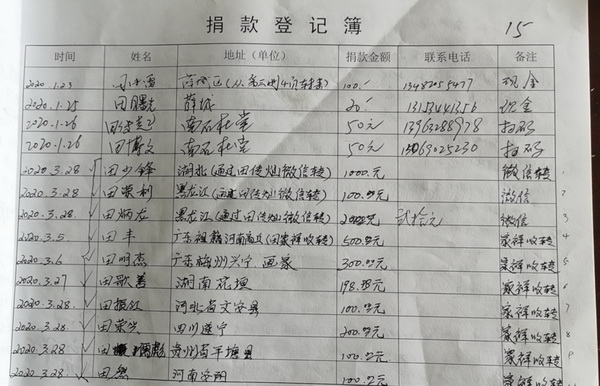 捐款登记簿
15
时间 姓名 地址（单位） 捐款金额 联系电话 备注
2020.1.23 100.- 现金
2020.1.25 田曙光 薛城 20.- 现金
2020.1.26 南石社堂 50元 13963288978 扫码
2020.1.26 田博文 南石社堂 50元 扫码
2020.3.28 田少锋 湖北(通过田传灿微信转) 1000元 微信转 1
2020.3.28 田荣利 黑龙江(通过田传灿微信转) 100元 微信 2
2020.3.28. 田炳龙 黑龙江(通过田传灿微信转) 贰拾元 微信 3
2020.3.5 田丰 广东祖籍河南商丘(田家祥收转) 500元 家祥收转 4
2020.3.6 田明杰 广东梅州兴宁 画家 300元 家祥收转 5
2020.3.27 田歌善 湖南花垣 家祥收转 6
2020.3.28. 田振红 河北省文安县 100元 家祥收转 7
2020.3.28. 田荣兴 四川遂宁 200元 家祥收转 8
2020.3.28 田 彪 贵州省平塘县 100元 家祥收转 9
2020.3.28. 田 河南洛阳 100元 家祥收转